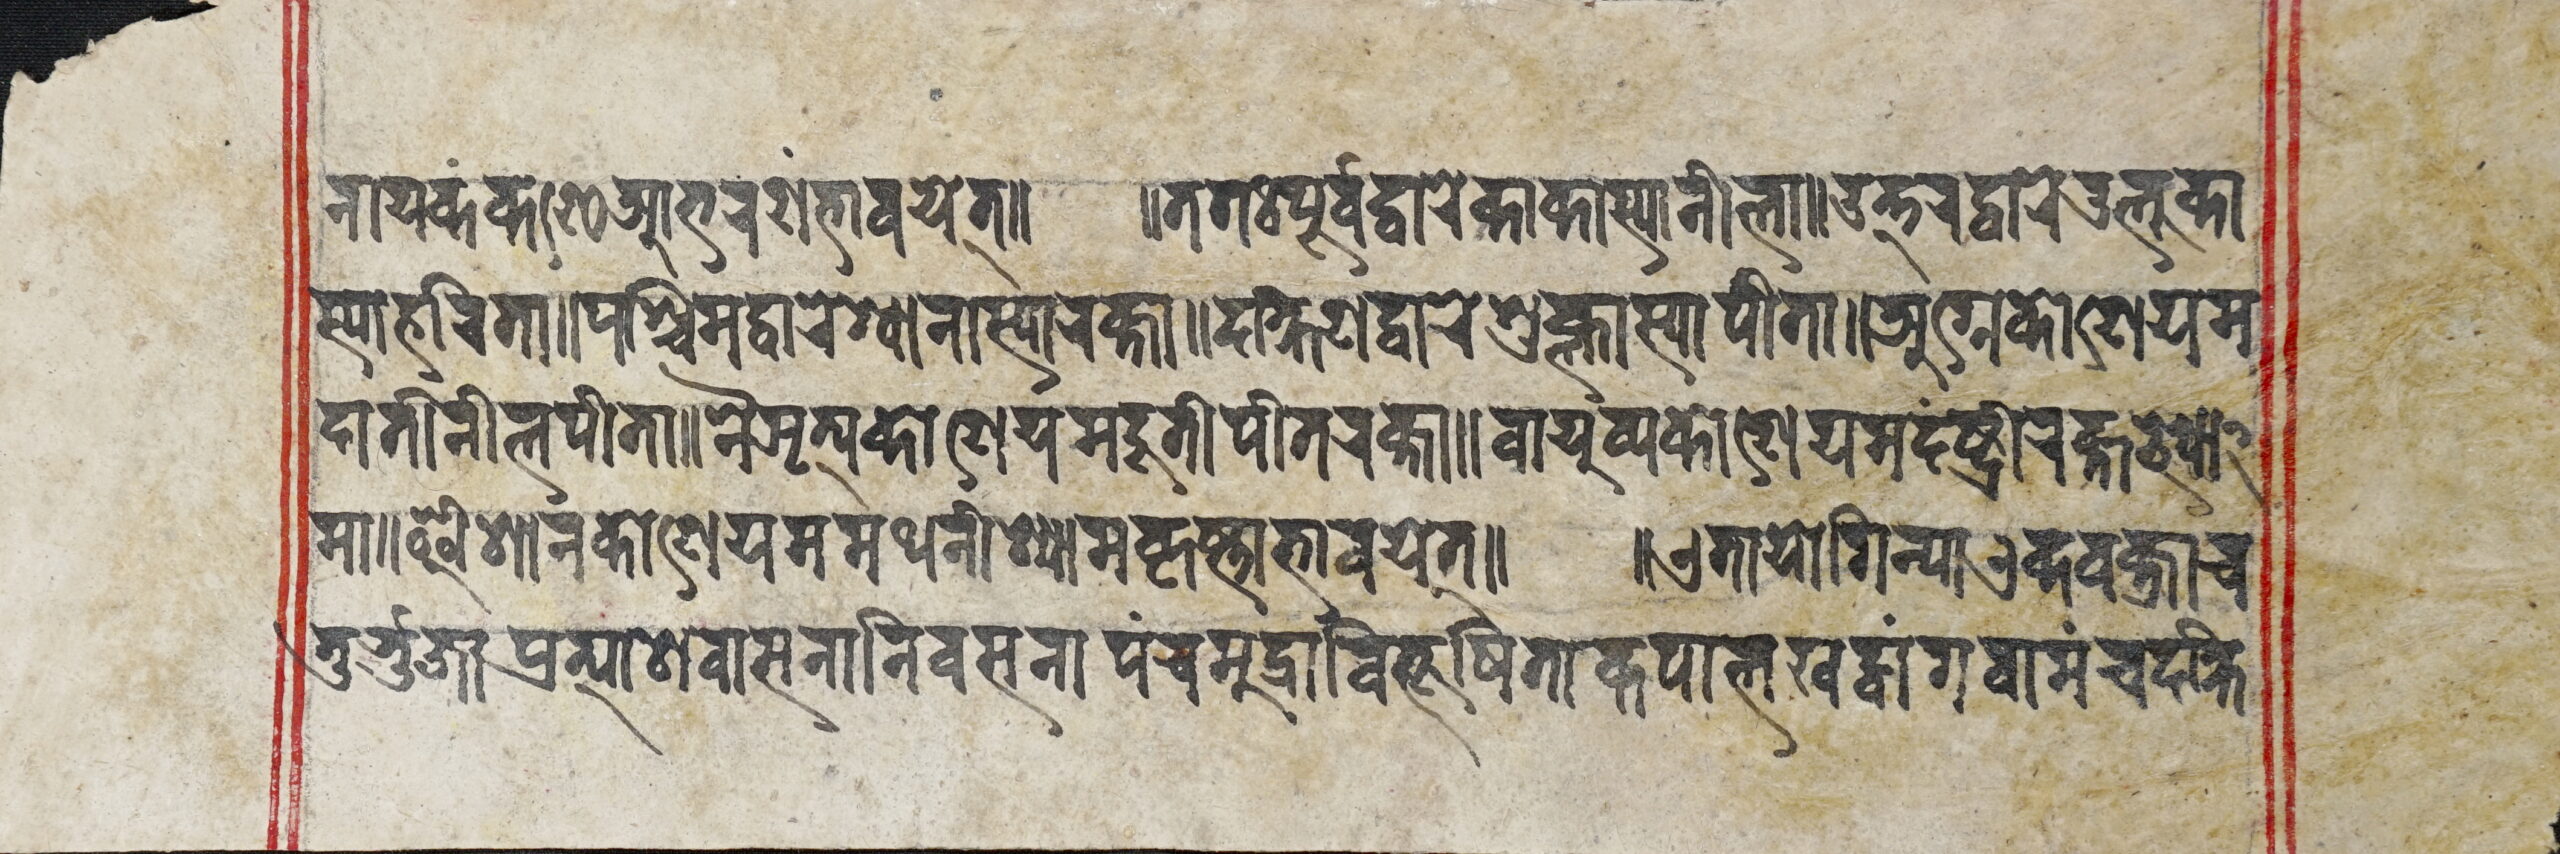 नायकंकणेआभरणंभावयेत्॥ ॥ततःपूर्वद्वारेकाकास्यानीला॥उत्तरद्वारेउलूका
स्याहरिता॥पश्चिमद्वारेश्वानास्यारक्ता॥दक्षिणद्वारेशुकास्यापीता॥अग्नेकोणेयम
दातीनीलपीता॥नैऋत्यकोणेयमदूतीपीतरक्ता॥वायुव्यकोणेयमदंष्ट्रीरक्तश्या
मा॥ईशानकोणेयममथनीश्यामकृष्णाभावयेत्॥ ॥एतायोगिन्याएकवक्त्राच
तुर्भुजाप्रत्याशवासनानिवसनापंचमुद्राविभूषिताकपालखट्वांगवामंचदक्षि